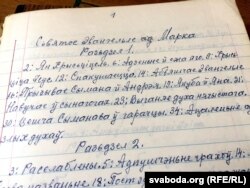 1
Сьвятое Эвангельле ад Марка
Разьдзел 1.
2: Ян Хрысьціцель. 6: Адзеньне й ежа яго. 8: Хрыш-
Ісуса. 12: Спакушэньне. 14: Абвяшчае Эвангельле
Прызваньне Сымана й Андрэя. 19: Якуба й Яна. 21:
Навучае ў сынагогах. 23: Выганяе духа нячыстага.
30: Цешча Сымонава ў гарачцы. 34: Ацаленьне
злых духаў.
Разьдзел 2.
3: Расслаблены. 5: Адпушчэньне грахоў. 14:
18: Пост
svaboda.org (RFE/RL)